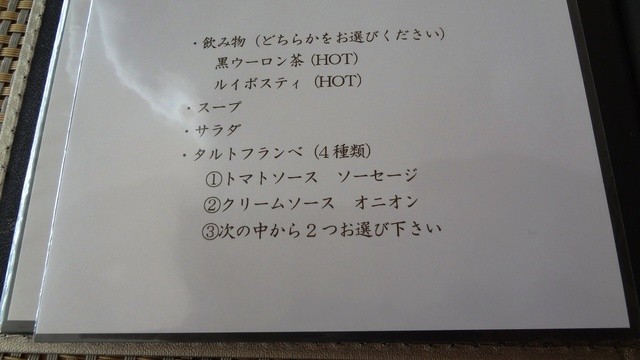 ・飲み物（どちらかをお選びください）
黒ウーロン茶（HOT）
ルイボスティ（HOT）
・スープ
・サラダ
・タルトフランベ（４種類）
①トマトソース　ソーセージ
②クリームソース　オニオン
③次の中から２つお選び下さい